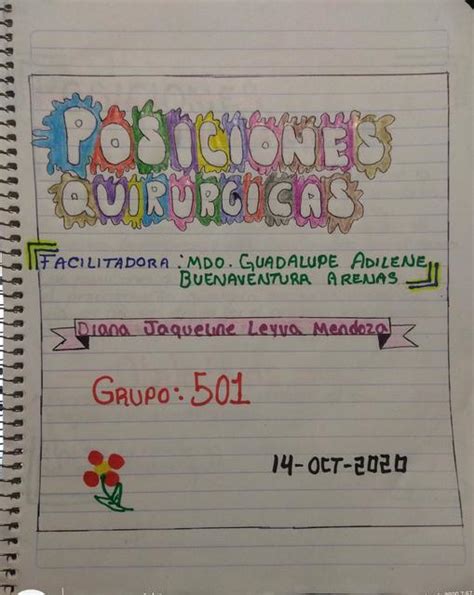 POSICIONES
QUIRURGICAS
FACILITADORA: MDO. GUADALUPE ADILENE
BUENAVENTURA ARENAS
Diana Jaqueline Leyva Mendoza
GRUPO: 501
14-OCT-2020